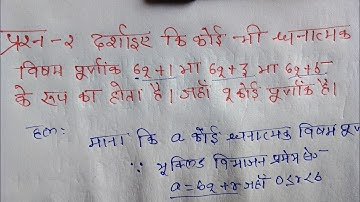 प्रश्न-२ दर्शाइए कि कोई भी धनात्मक
विषम पूर्णांक 6q+1 या 6q+3 या 6q+5
के रूप का होता है। जहाँ q कोई पूर्णांक है।
हल: माना कि a कोई धनात्मक विषम पूर्ण
∵ यूक्लिड विभाजन प्रमेय से-
a=6q+r जहाँ 0≤r<6